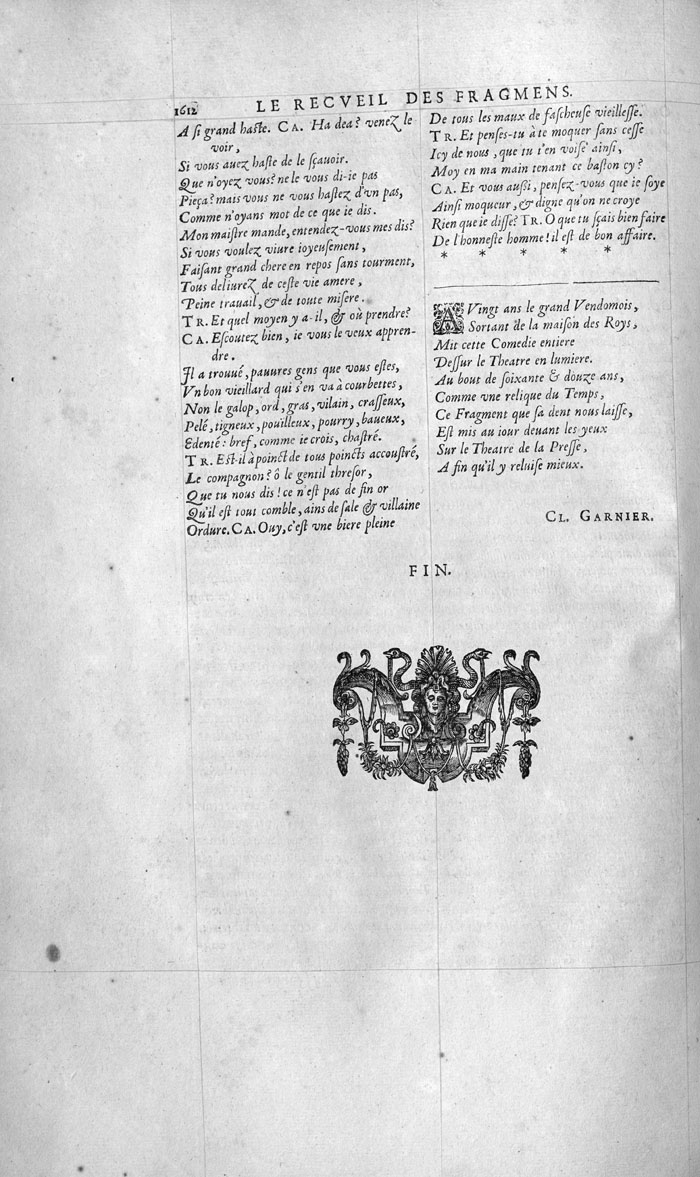 1612
LE RECVEIL DES FRAGMENS.
A ſi grand haſte. CA. Ha dea? venez le
voir,
Si vous auez haſte de le ſçauoir.
Que n'oyez vous? ne le vous di-ie pas
Pieça? mais vous ne vous haſtez d'vn pas,
Comme n'oyans mot de ce que ie dis.
Mon maiſtre mande, entendez-vous mes dis?
Si vous voulez viure ioyeuſement,
Faiſant grand chere en repos ſans tourment,
Tous deliurez de ceſte vie amere,
Peine trauail, & de toute miſere.
TR. Et quel moyen y a-il, & où prendre?
CA. Eſcoutez bien, ie vous le veux appren-
dre.
Il a trouué, pauures gens que vous eſtes,
Vn bon vieillard qui s'en va à courbettes,
Non le galop, ord, gras, vilain, craſſeux,
Pelé, tigneux, pouilleux, pourry, baueux,
Edenté: bref, comme ie crois, chaſtré.
TR. Eſt-il à poinct de tous poincts accouſtré,
Le compagnon? ô le gentil threſor,
Que tu nous dis! ce n'eſt pas de fin or
Qu'il eſt tout comble, ains de ſale & villaine
Ordure. CA. Ouy, c'eſt vne biere pleine
De tous les maux de faſcheuſe vieilleſſe.
TR. Et penſes-tu à te moquer ſans ceſſe
Icy de nous, que tu t'en voiſe ainſi,
Moy en ma main tenant ce baſton cy?
CA. Et vous auſſi, penſez-vous que ie ſoye
Ainſi moqueur, & digne qu'on ne croye
Rien que ie diſſe? TR. O que tu ſçais bien faire
De l'honneſte homme! il eſt de bon affaire.
* * * * *
A Vingt ans le grand Vendomois,
Sortant de la maiſon des Roys,
Mit cette Comedie entiere
Deſſur le Theatre en lumiere.
Au bout de ſoixante & douze ans,
Comme vne relique du Temps,
Ce Fragment que ſa dent nous laiſſe,
Eſt mis au iour deuant les yeux
Sur le Theatre de la Preſſe,
A fin qu'il y reluiſe mieux.
CL. GARNIER.
FIN.